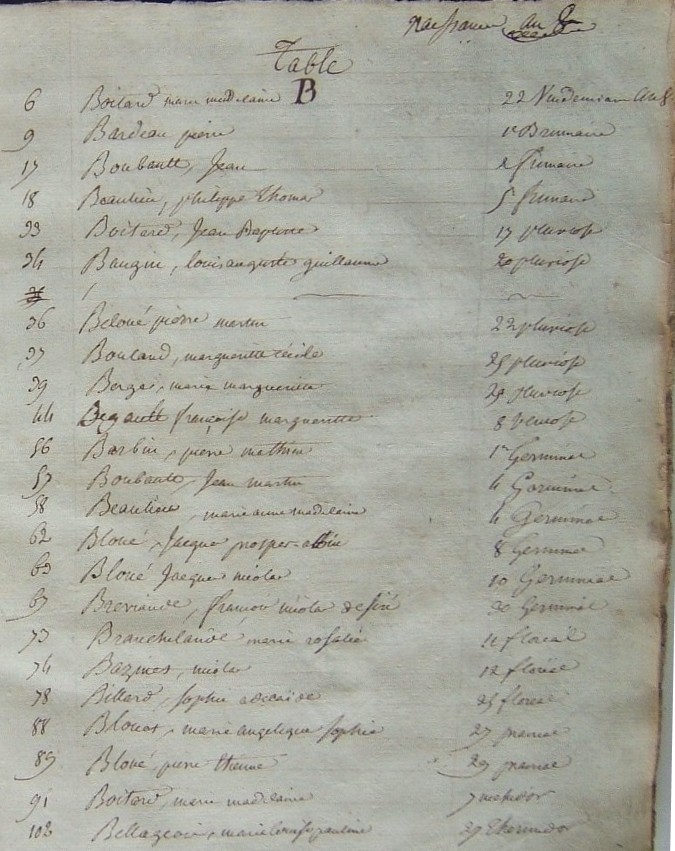 Naissance an 8
Table
B
6 Boitard marie madelaine 22 Vendemiaire An 8
9 Bardeau pierre 1er Brumaire
17 Boubault, Jean 2 frimaire
18 Beaulieu, philippe thomas 5 frimaire
33 Boitard, Jean Baptiste 17 pluviose
34 Bauzin, louis auguste guillaume 20 pluviose
36 Beloué pierre martin 22 pluviose
37 Bouland, margueritte cécile 25 pluviose
39 marie margueritte 29 pluviose
44 Begault françoise margueritte 8 ventose
56 Barbin, pierre mathieu 1er Germinal
57 Boubault, Jean martin 4 Germinal
58 Beaulieu, marie anne madelaine 4 Germinal
62 Bloué, Jacque prosper 8 Germinal
63 Bloué Jacque nicolas 10 Germinal
67 Breviande, françois nicolas desiré 20 Germinal
73 Branchelande, marie rosalie 11 floreal
74 Bazmes, nicolas 12 floreal
78 Billard, Sophie adelaide 25 floreal
88 marie angelique sophie 27 prairial
89 Bloué, pierre etienne 29 prairial
91 Boitard, marie madelaine 7 messidor
102 marie louise pauline 29 thermidor